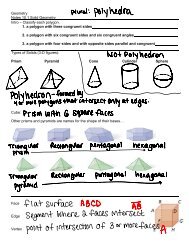 Geometry
plural: Polyhedra
Notes 10.1 Solid Geometry
Intro – Classify each polygon.
1. a polygon with three congruent sides
2. a polygon with six congruent sides and six congruent angles
3. a polygon with four sides and with opposite sides parallel and congruent
Types of Solids (3-D figures)
NOT Polyhedron
Prism Pyramid Cone Cylinder Sphere
Polyhedron - formed by
4 or more polygons that intersect only at edges.
Cube: Prism with 6 square faces
Other prisms and pyramids are named for the shape of their bases.
Triangular prism Rectangular pentagonal hexagonal
Triangular pyramid Rectangular pentagonal hexagonal
Face: flat surface ABCD
Edge: Segment where 2 faces intersect
Vertex: point of intersection of 3 or more faces